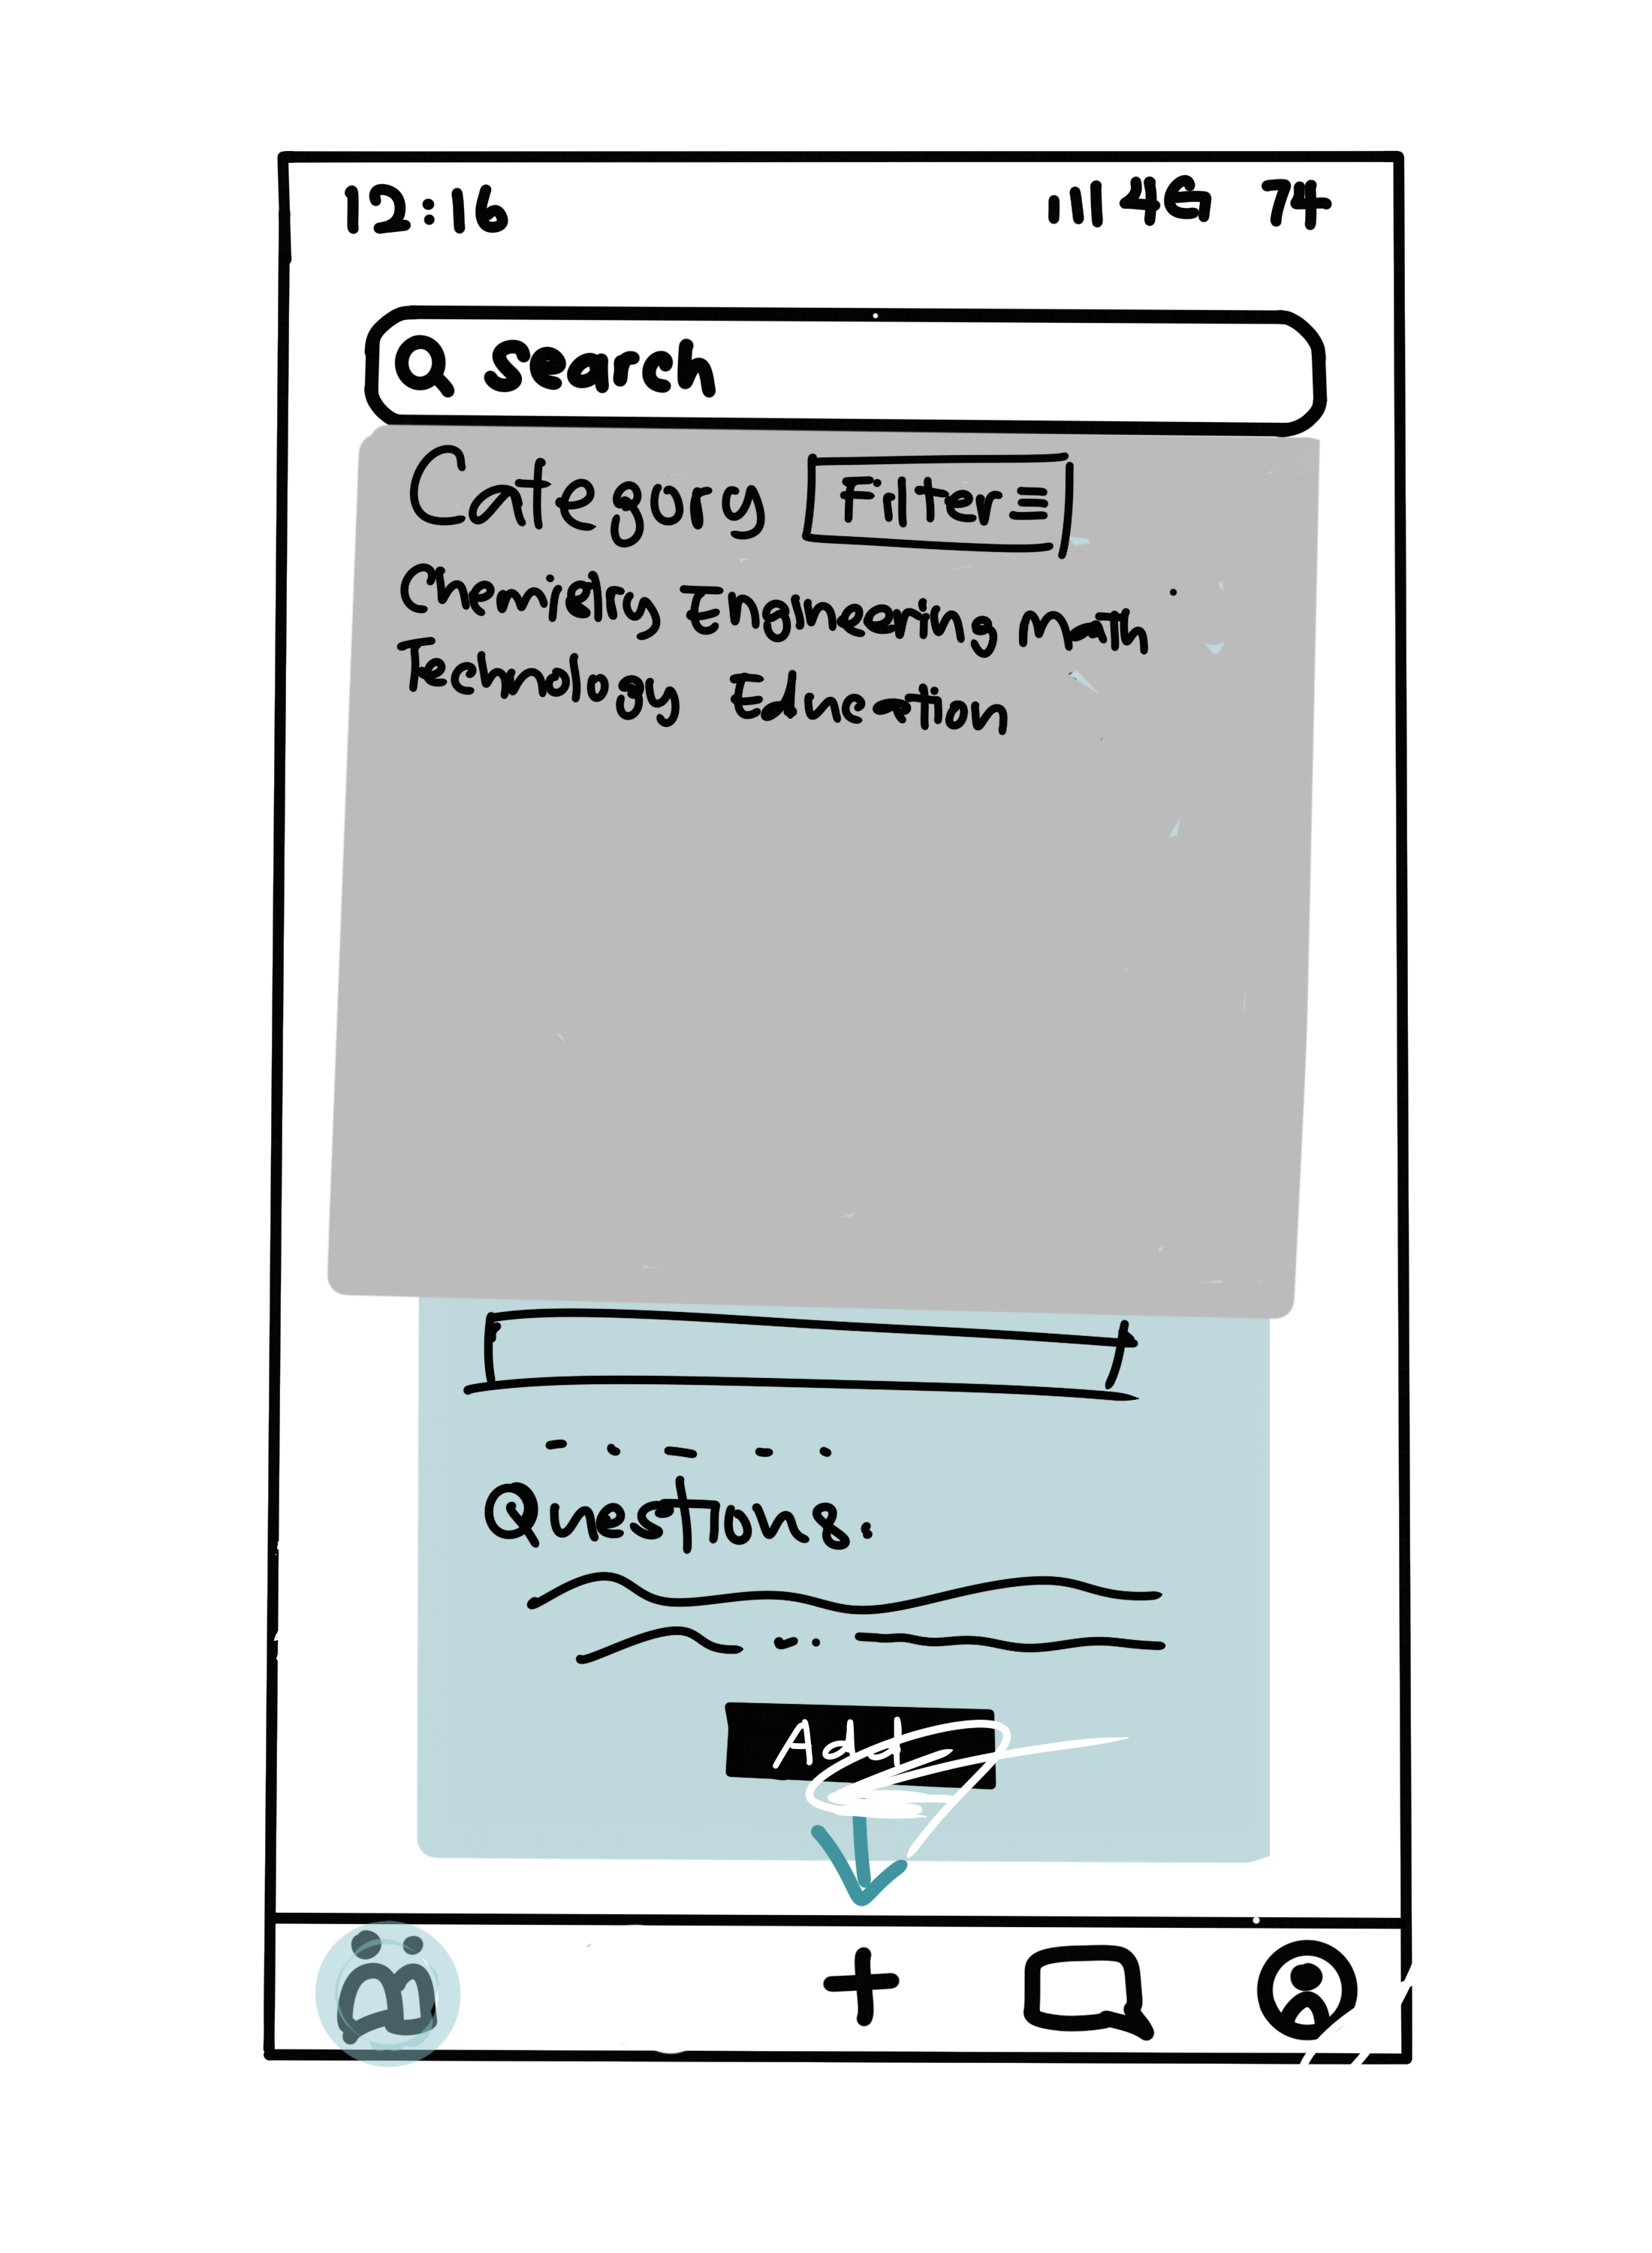 12:16 4G 74
Search
Category Filter
Chemistry Engineering Math
Technology Education
Questions:
Add